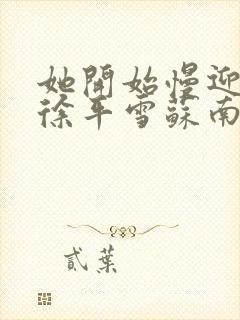 她開始慢迎
徐平雪蘇南
貳葉